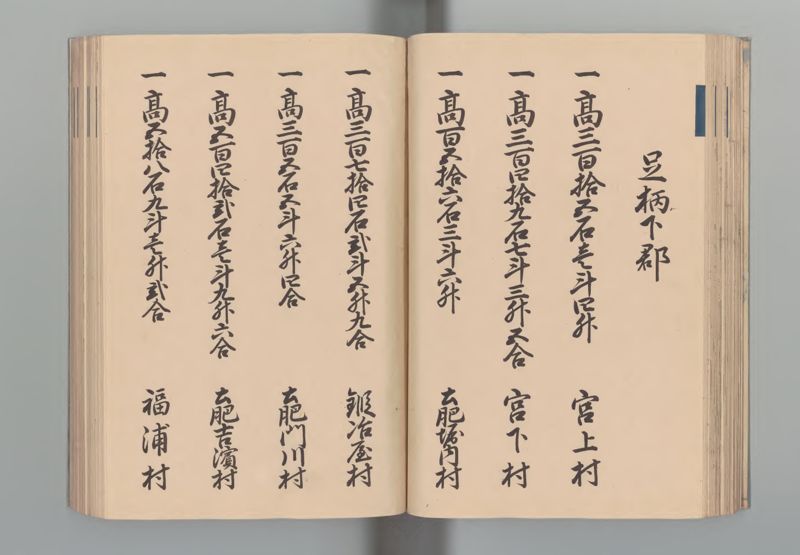 足柄下郡
一高三百拾五石壱斗四升 宮上村
一高三百四拾九石七斗三升五合 宮下村
一高百五拾六石三斗六升 土肥堀内村
一高三百七拾四石弐斗五升九合 鍛冶屋村
一高三百五石五斗六升四合 土肥門川村
一高五百四拾弐石壱斗九升六合 土肥吉濱村
一高五拾八石九斗壱升弐合 福浦村